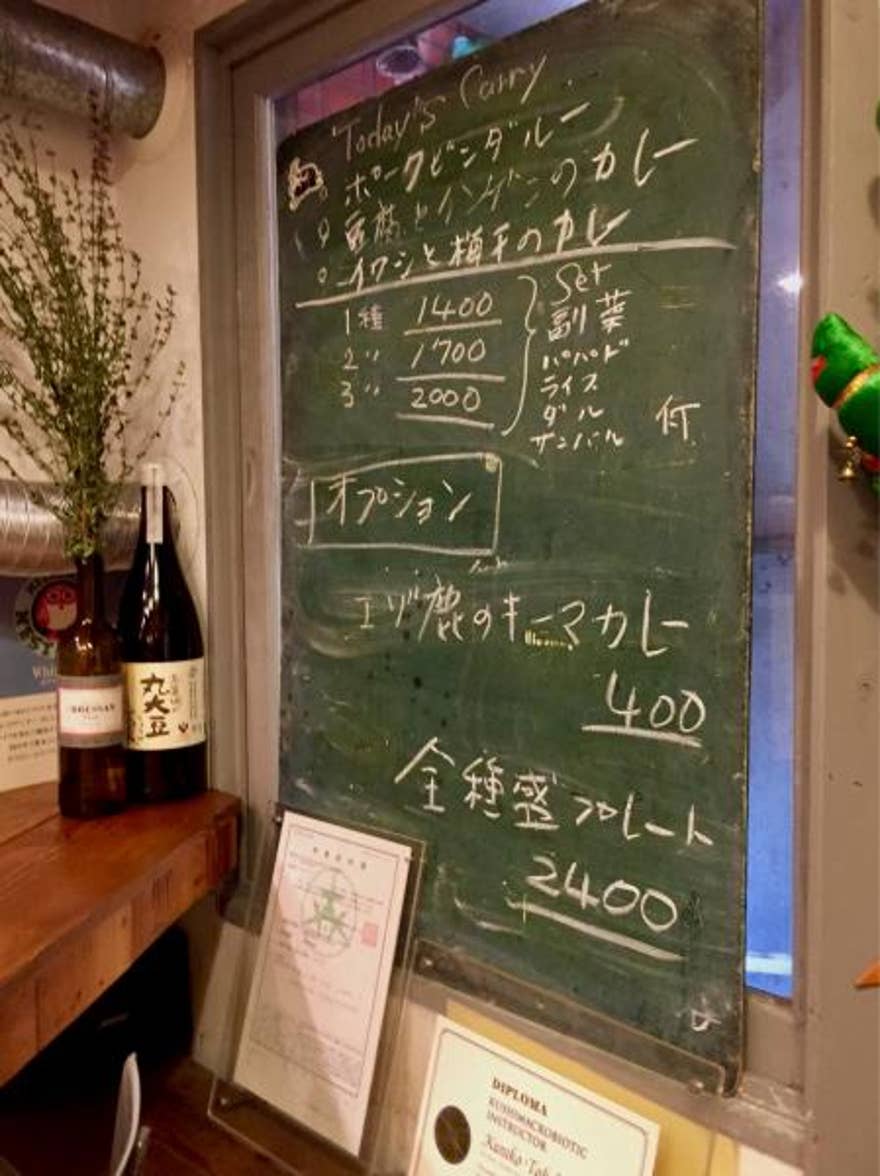 Today's Curry
ポークビンダルー
豆腐とインゲンのカレー
イワシと梅干のカレー
1種 1400
2〃 1700
3〃 2000
Set
副菜
パパド
ライス
ダル
サンバル 付
オプション
エゾ鹿のキーマカレー
400
全種盛プレート
2400
丸大豆
DIPLOMA
KUSHIMACROBIOTIC
INSTRUCTOR